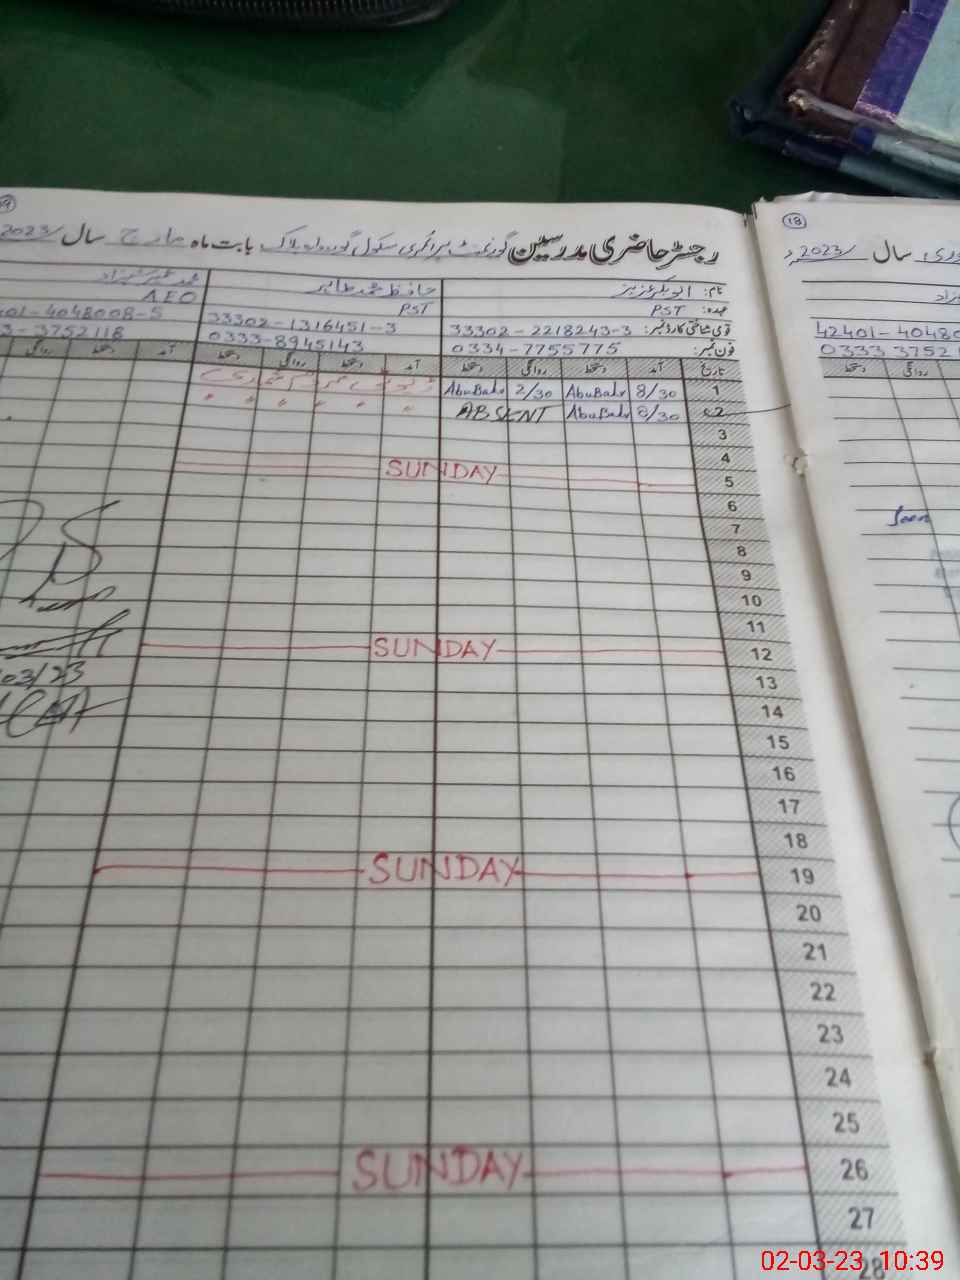 رجسٹر حاضری مدرسین گورنمنٹ پرائمری سکول بابت ماہ مارچ سال 2023/
نام: ابوبکر عزیز
حافظ محمد طاہر
عہدہ: PST
PST
AEO
قومی شناختی کارڈ نمبر: 33302-2218243-3
33302-1316451-3
01-4048008-5
فون نمبر: 0334-7755775
0333-8945143
3-3752118
تاریخ آمد دستخط روانگی دستخط آمد دستخط روانگی دستخط آمد دستخط روانگی
1 8/30 AbuBakr 2/30 AbuBakr
2 8/30 AbuBakr ABSENT
3
4
5 SUNDAY
6
7
8
9
10
11
12 SUNDAY
13
14
15
16
17
18
19 SUNDAY
20
21
22
23
24
25
26 SUNDAY
27
28
03/23
18
سال 2023/
42401-4048
0333 3752
روانگی دستخط
Seen
02-03-23 10:39